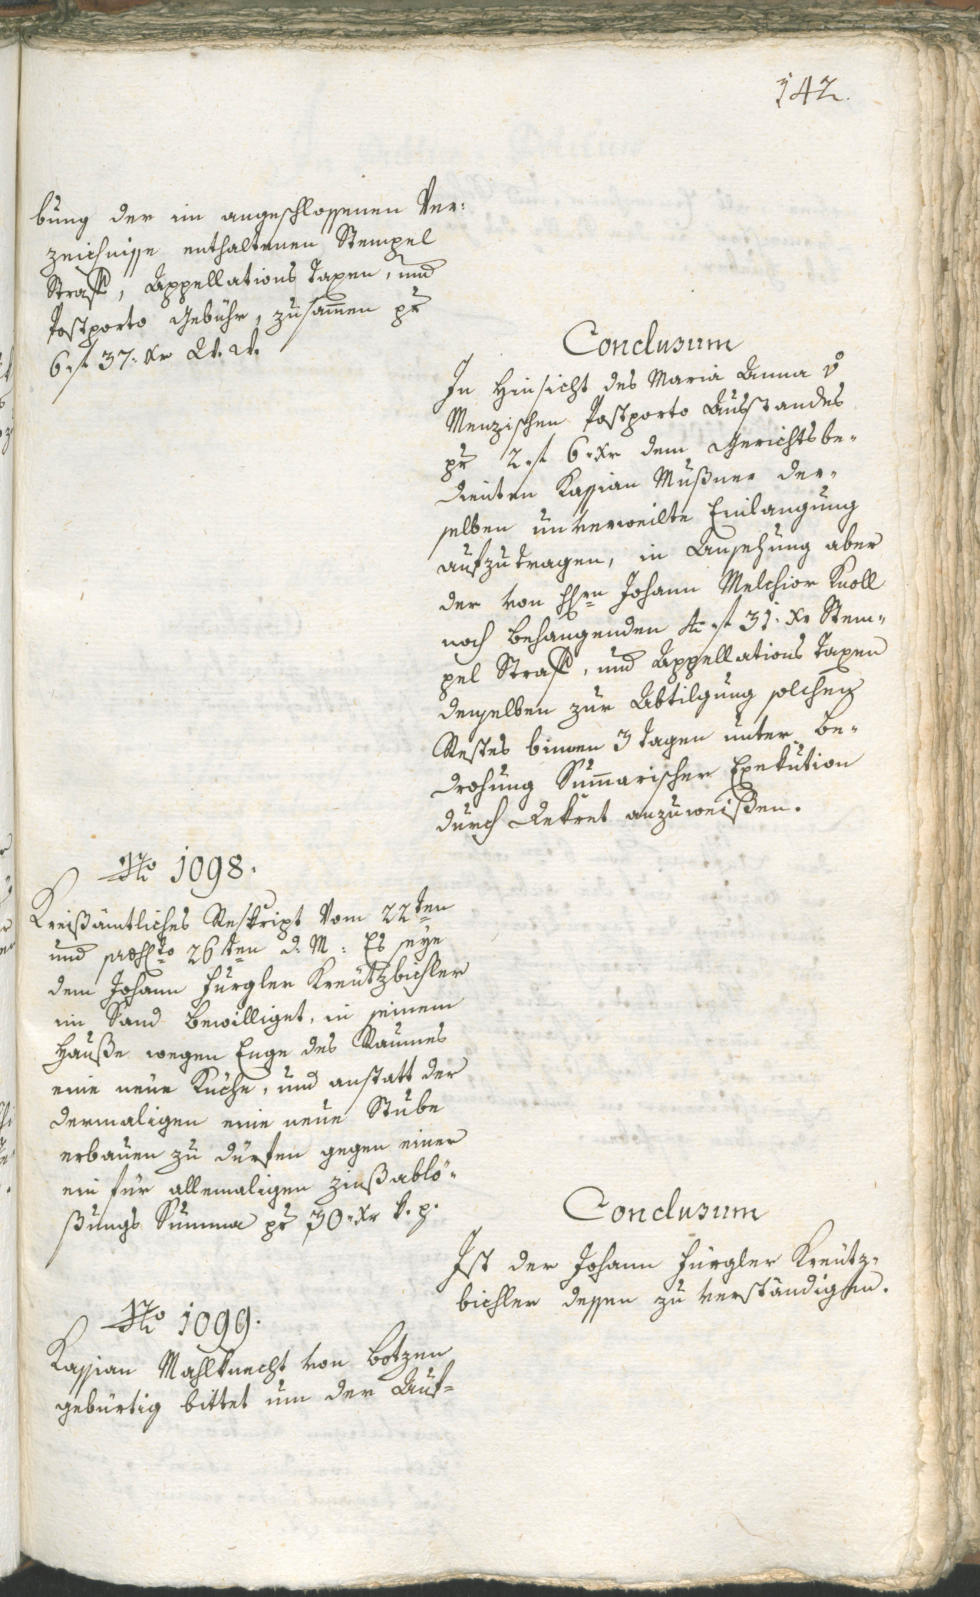 142.
bung der im angeschlossenen Ver:
zeichnisse enthaltenen Stempel
Straff, Appellations Taxen, und
Postporto Gebühr, zusammen pr
6 f 37. Xr
Conclusum
In Hinsicht des Maria Anna v
Menzischen Postporto Ausstandes
pr 2 f 6 Xr dem Gerichtsbe-
dienten Kassian Mußner der-
selben unverweilte Einlangung
aufzutragen, in Ansehung aber
der von Hrn Johann Melchior Knoll
noch behangenden 4 f 31. Xr Stem-
pel Straff, und Appellations Taxen
denselben zur Abtilgung solchen
Restes binnen 3 Tagen unter Be-
drohung Summarischer Exekution
durch Dekret anzuweißen.
No 1098.
Kreißämtliches Reskript vom 22ten
und 26ten d. M: Es seye
dem Johann Fürgler Kreutzbichler
im Sand bewilliget, in seinem
Hauße wegen Enge des Raumes
eine neue Küche, und anstatt der
dermaligen eine neue Stube
erbauen zu dürfen gegen einer
ein für allemaligen zinßablö-
ßungs Summa pr 30 Xr
Conclusum
Ist der Johann Fürgler Kreutz-
bichler dessen zu verständigen.
No 1099.
Kassian Mahlknecht von Botzen
gebürtig bittet um der Auf-